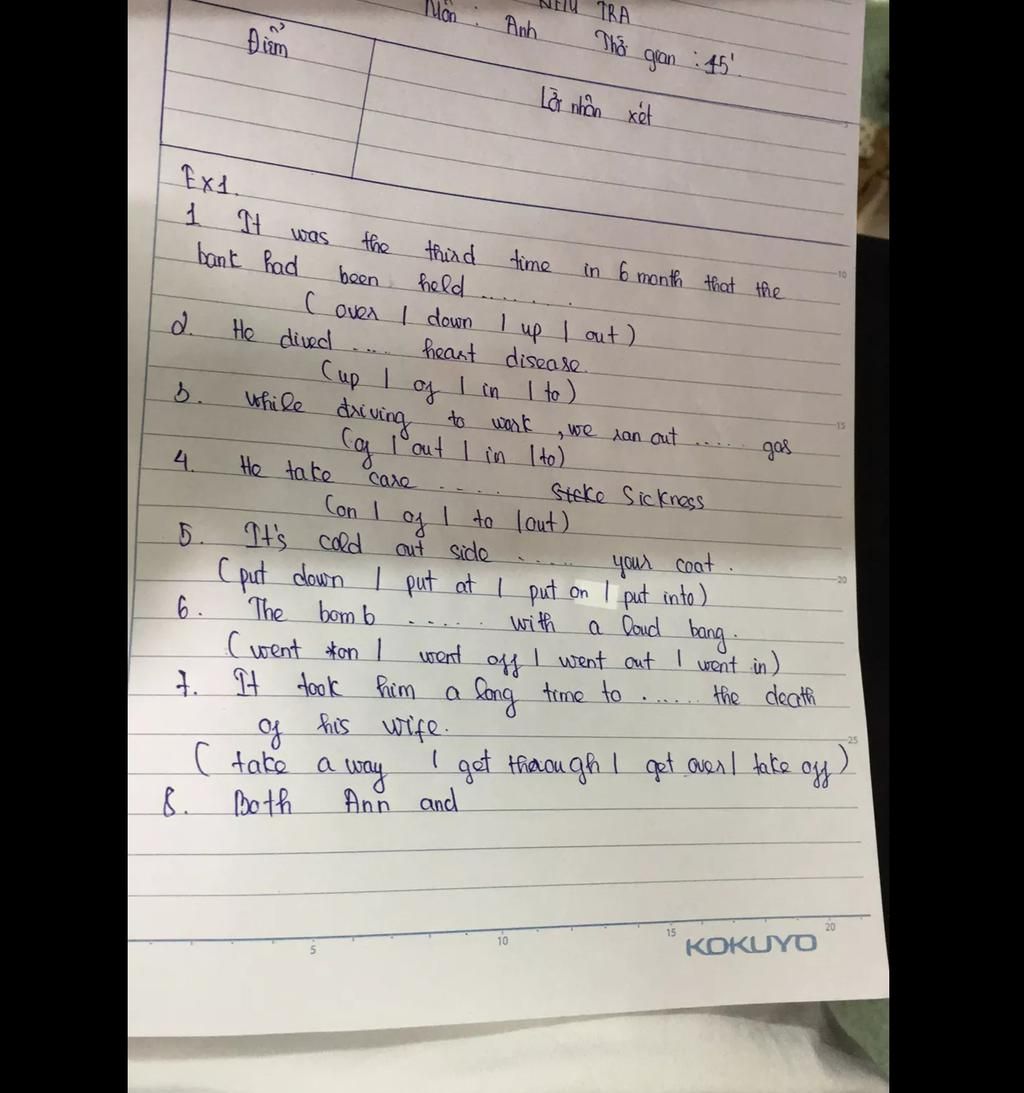 KIỂM TRA
Môn : Anh Thời gian : 45'.
Điểm
Lời nhận xét
Ex1.
1 It was the third time in 6 month that the
bank had been held .........
( over | down | up | out)
2. He dived .... heart disease.
(up | of | in | to)
3. While driving to work , we ran out ..... gas
(of | out | in | to)
4. He take care .... Sickness
(on | of | to | out)
5. It's cold out side ..... your coat.
(put down | put at | put on | put into)
6. The bomb ..... with a loud bang.
(went on | went off | went out | went in)
7. It took him a long time to ...... the death
of his wife.
( take a way | get through | get over | take off)
8. Both Ann and
5 10 15 20
10
15
20
25
KOKUYO